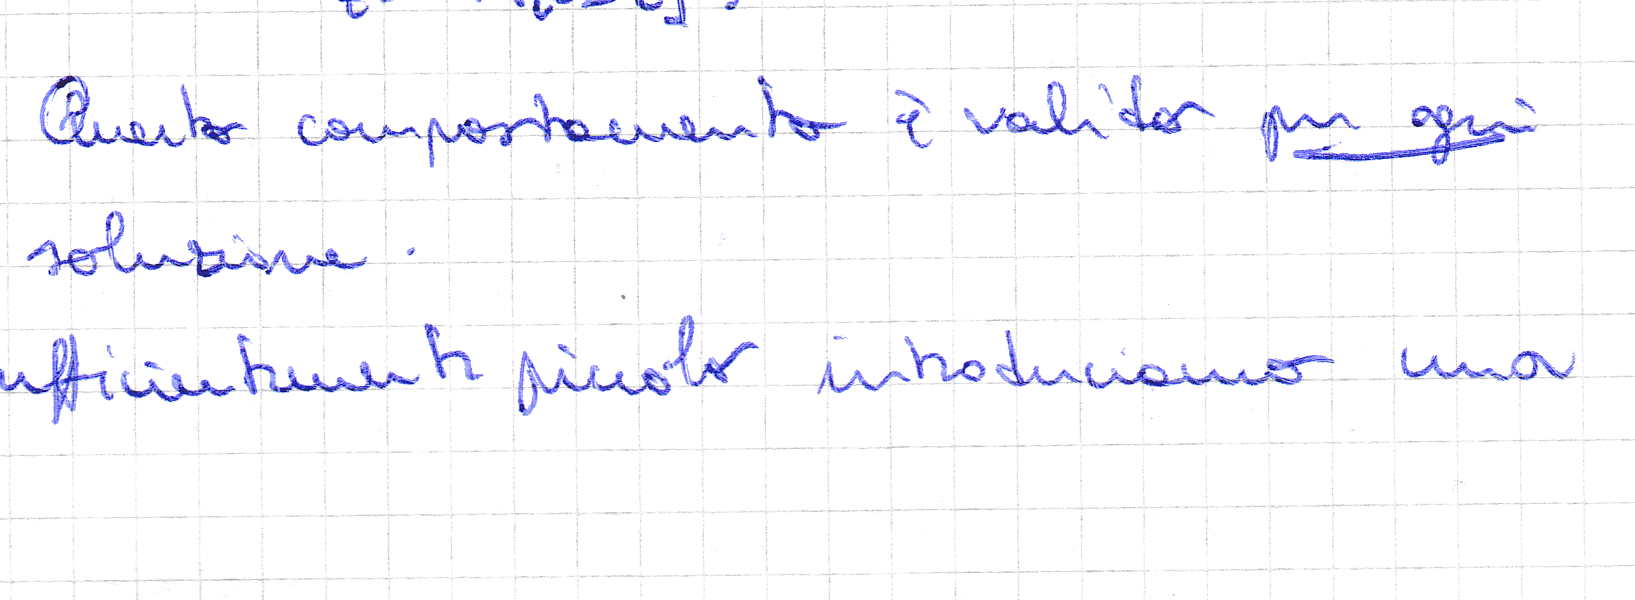 Questo comportamento è valido per ogni
soluzione.
ufficientemente piccolo introduciamo una